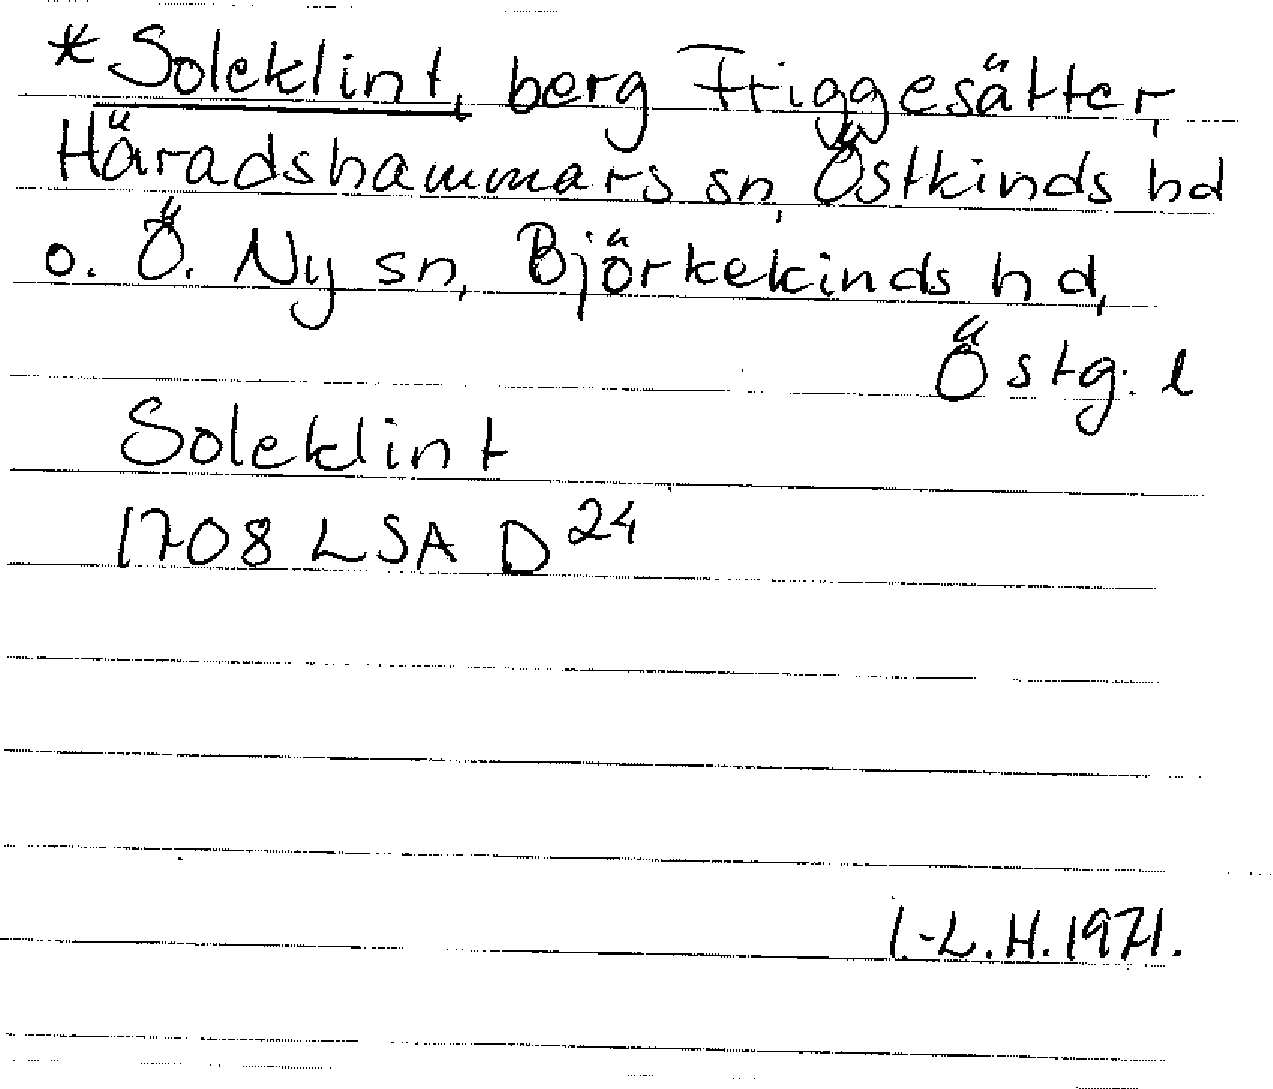 *Soleklint, berg Friggesätter,
Häradshammars sn, Östkinds hd
o. Ö. Ny sn, Björkekinds hd,
Östg. l
Soleklint
1708 LSA D 24
I.-L.H. 1971.